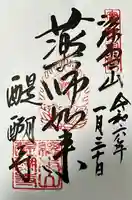 深雪山
令和六年
一月三十日
薬師如来
醍醐寺